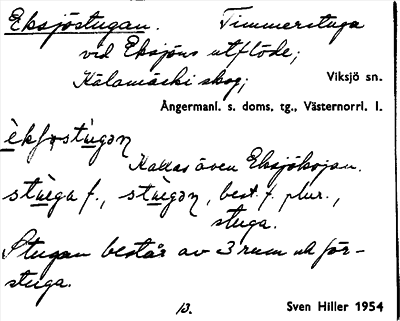 Eksjöstugan. Timmerstuga
vid Eksjöns utflöde;
Kälamäcki skog; Viksjö sn.
Ångermanl. s. doms. tg., Västernorrl. l.
Kallas även Eksjökojan.
f., best. f. plur.,
stuga.
Stugan består av 3 rum och för-
stuga.
13. Sven Hiller 1954